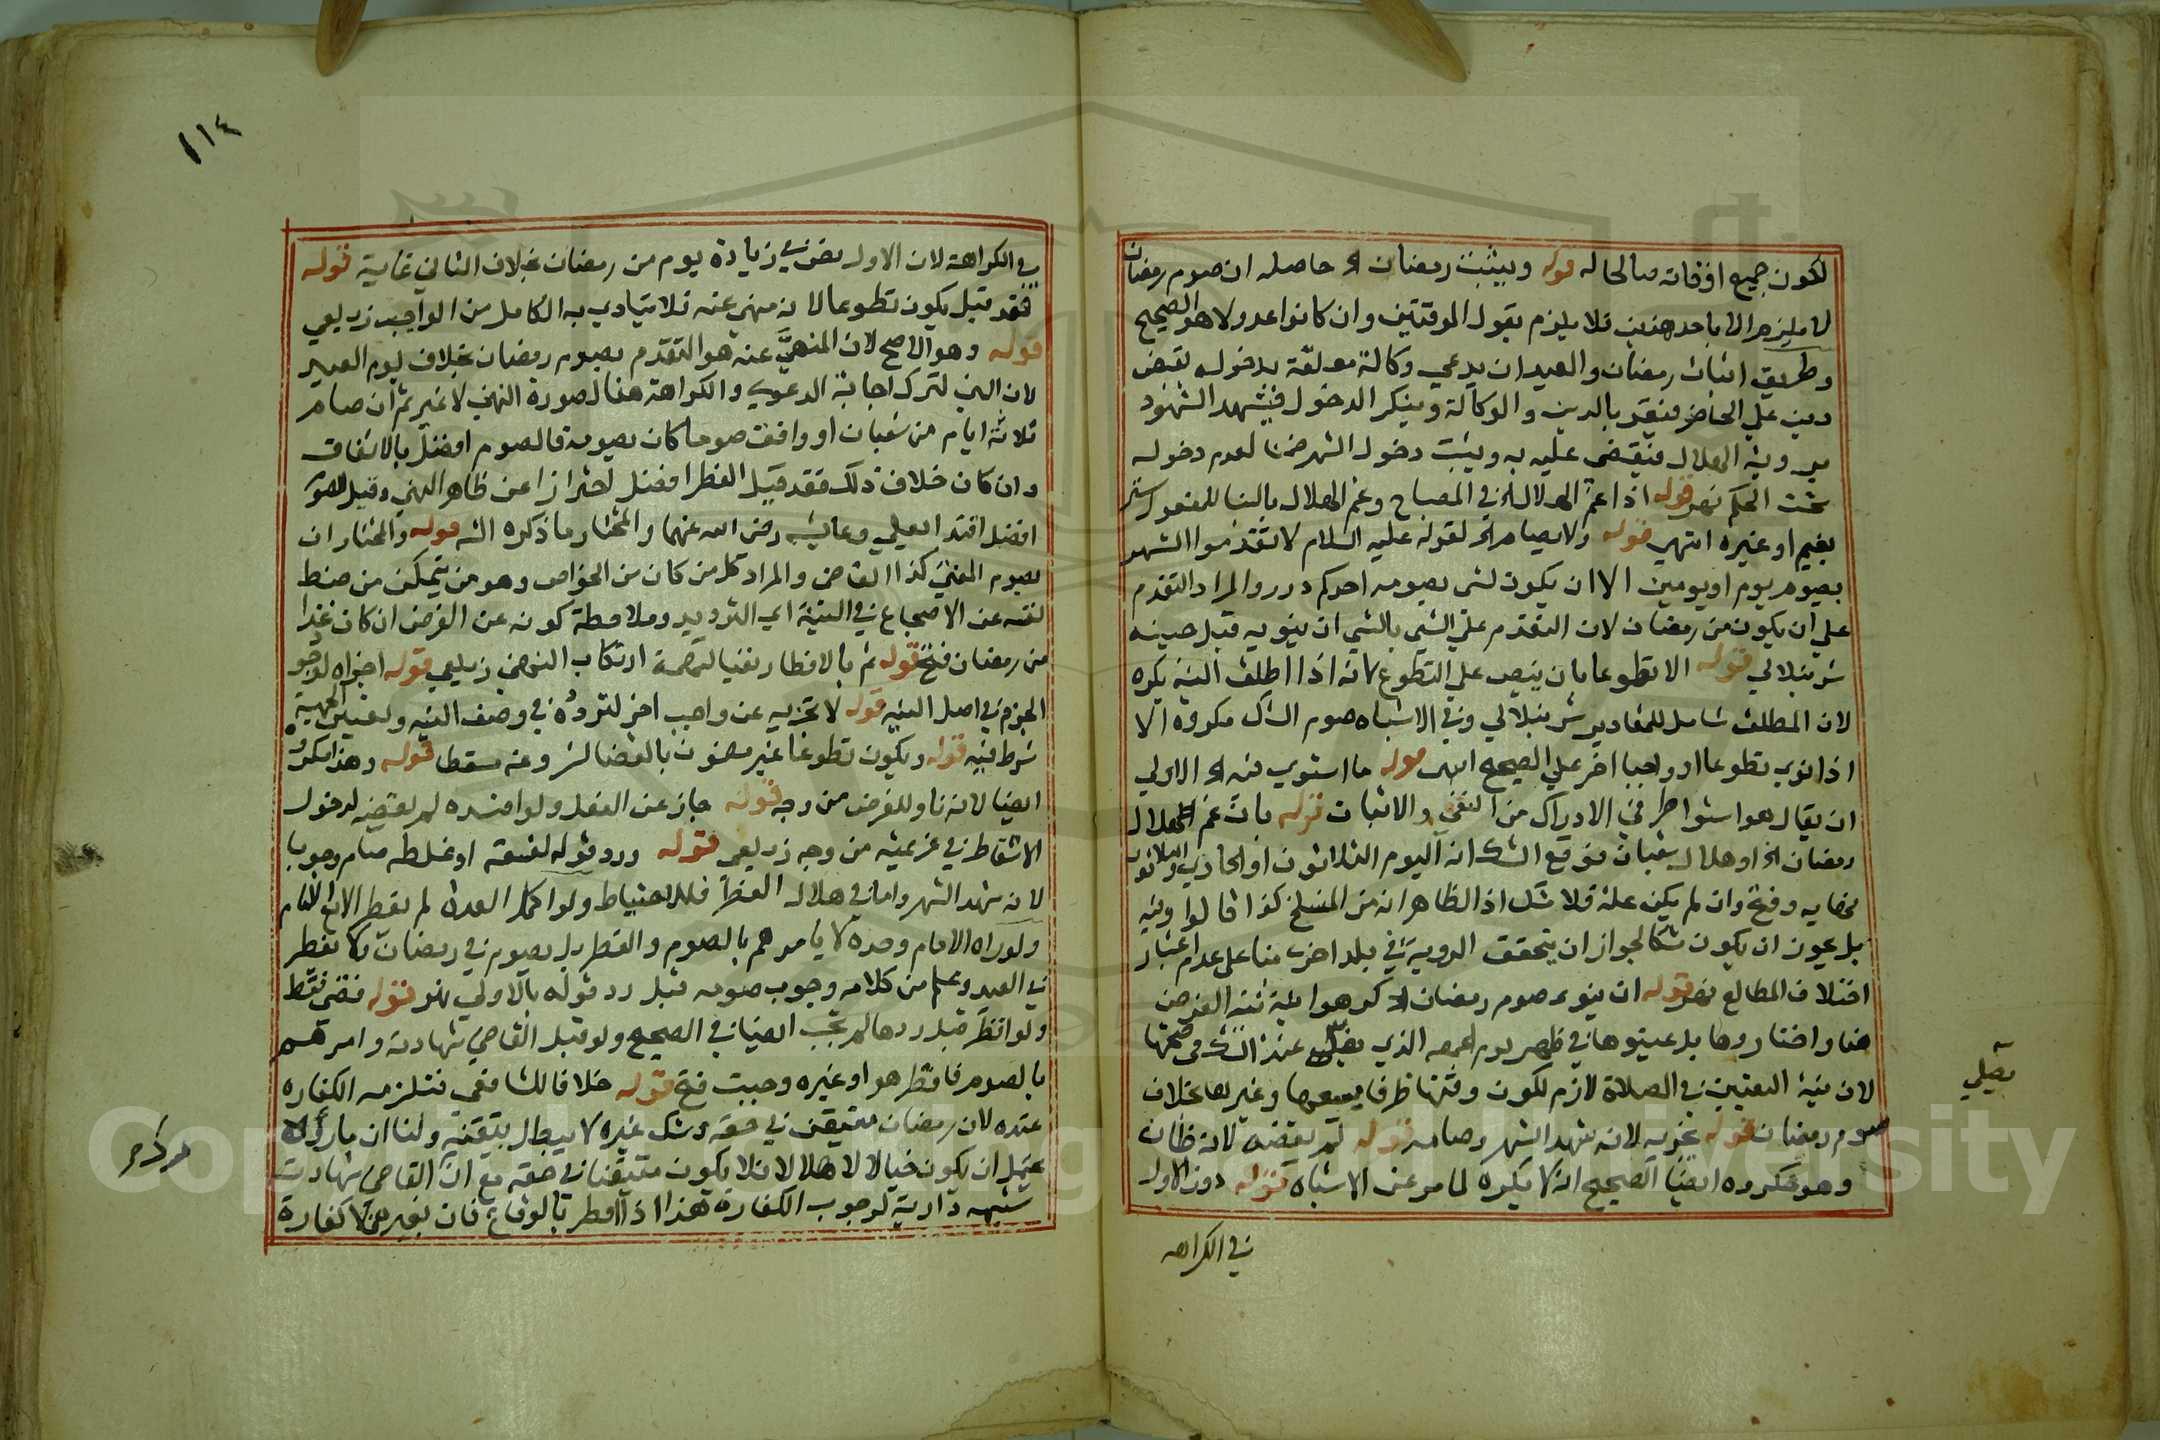 لكون جميع اوقاته صالحا له قوله ويثبت رمضان الخ حاصله ان صوم رمضان
لا يلزم الا باحد هذين فلا يلزم بقول الموقتين وان كانوا عدولا هو الصحيح
وطريق اثبات رمضان والعيد ان يدعي وكالة معلقة بدخوله لقبض
دين علي الحاضر فيقر بالدين والوكالة وينكر الدخول فيشهد الشهود
بروية الهلال فيقضي عليه به ويثبت دخول الشهر ضمنا لعدم دخوله
تحت الحكم نهر قوله اذا غم الهلال الخ في المصباح وغم الهلال بالبنا للمفعول ستر
بغيم او غيره انتهي قوله ولا يصام الخ لقوله عليه السلام لا تقدموا الشهر
بصوم يوم او يومين الا ان يكون لشي يصومه احدكم درر والمراد التقدم
علي ان يكون من رمضان لان التقدم علي الشي بالشي ان ينوي به قبل حينه
شرنبلالي قوله الا تطوعا بان ينص علي التطوع لانه اذا اطلق النية يكره
لان المطلق شامل للمقادير شرنبلالي وفي الاشباه صوم الشك مكروه الا
اذا نوي تطوعا او واجبا اخر علي الصحيح انتهي قوله ما استوي فيه الخ الاولي
ان يقال هو استوا طرفي الادراك من النفي والاثبات قوله بان غم هلال
رمضان الخ او هلال شعبان فوقع الشك انه اليوم الثلاثون او الحادي والثلاثون
وفتح وان لم يكن علة فلا شك اذ الظاهر انه من المنسلخ كذا قالوا وفيه
بل يجوز ان يكون شكا لجواز ان يتحقق الروية في بلد اخري بنا علي عدم اعتبار
اختلاف المطالع نهر قوله ان ينوي صوم رمضان الخ كرهوا نية الفرض
هنا واختاروها بل عينوها في ظهر يوم الجمعة الذي يصلي عند الشك في صحتها
لان نية التعيين في الصلاة لازم لكون وقتها ظرفا يسعها وغيرها بخلاف
صوم رمضان قوله يجزيه لانه شهد الشهر وصامه قوله لم يقضه لانه ظان
وهو مكروه ايضا الصحيح انه لا يكره لما مر عن الاشباه قوله دون الاول
في الكراهة
يصلي
١١٤
في الكراهة لان الاول يفضي في زيادة يوم من رمضان بخلاف الثاني غاية قوله
فقد قيل يكون تطوعا لانه منهي عنه فلا يتادي به الكامل من الواجب زيلعي
قوله وهو الاصح لان المنهي عنه هو التقدم بصوم رمضان بخلاف يوم العيد
لان النهي لترك اجابة الدعوي والكراهة هنا لصورة النهي لا غير ثم ان صام
ثلاثة ايام من شعبان او وافق صوما كان يصومه فالصوم افضل بالاتفاق
وان كان خلاف ذلك فقد قيل الفطر افضل احترازا عن ظاهر النهي وقيل الصوم
افضل اقتدا بعلي وعايشه رضي الله عنهما والمختار ما ذكره الش قوله والمختار ان
يصوم المفتي كذا القاضي والمراد كل من كان من الخواص وهو من يتمكن من ضبط
نفسه عن الاضجاع في النية اي الترديد وملاحظة كونه عن الفرض ان كان غدا
من رمضان فتح قوله ثم بالافطار نفيا لتهمة ارتكاب النهي زيلعي قوله اجزاه لوجود
الجزم في اصل النيه قوله لا تجزيه عن واجب اخر لتردده في وصف النيه وتعيين الجهة
شرط فيه قوله ويكون تطوعا غير مضمون بالقضا لشروعه مسقطا قوله وهذا مكروه
ايضا لانه ناو للفرض من وجه قوله جاز عن النفل ولو افسده لم يقضه لدخول
الاسقاط في عزيمته من وجه زيلعي قوله ورد قوله لفسقه او غلطه صام وجوبا
لانه شهد الشهر واما في هلال الفطر فللاحتياط ولو اكمل العدة لم يفطر الا مع الامام
ولو راه الامام وحده لا يامرهم بالصوم والفطر بل يصوم في رمضان ولا يفطر
في العيد وعلم من كلامه وجوب صومه قبل رد قوله بالاولي نهر قوله قضي فقط
ولو افطر قبل ردها لم تجب ايضا في الصحيح ولو قبل القاضي شهادته وامرهم
بالصوم فافطر هو او غيره وجبت فتح قوله خلافا للشافعي فتلزمه الكفاره
عنده لان رمضان متيقن في حقه وشك غيره لا يبطل يتقنه ولنا ان ما راه
يحتمل ان يكون خيالا لا هلالا فلا يكون متيقنا في حقه مع ان القاضي شهادته
شبهة دارية لوجوب الكفارة هذا اذا افطر بالوقاع فان بغيره لا كفارة